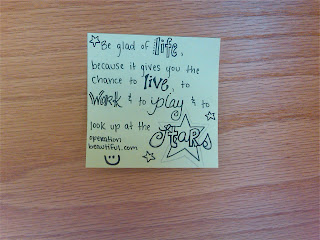 Be glad of life,
because it gives you the
chance to live, to
work & to play & to
look up at the
Stars
operation
beautiful.com